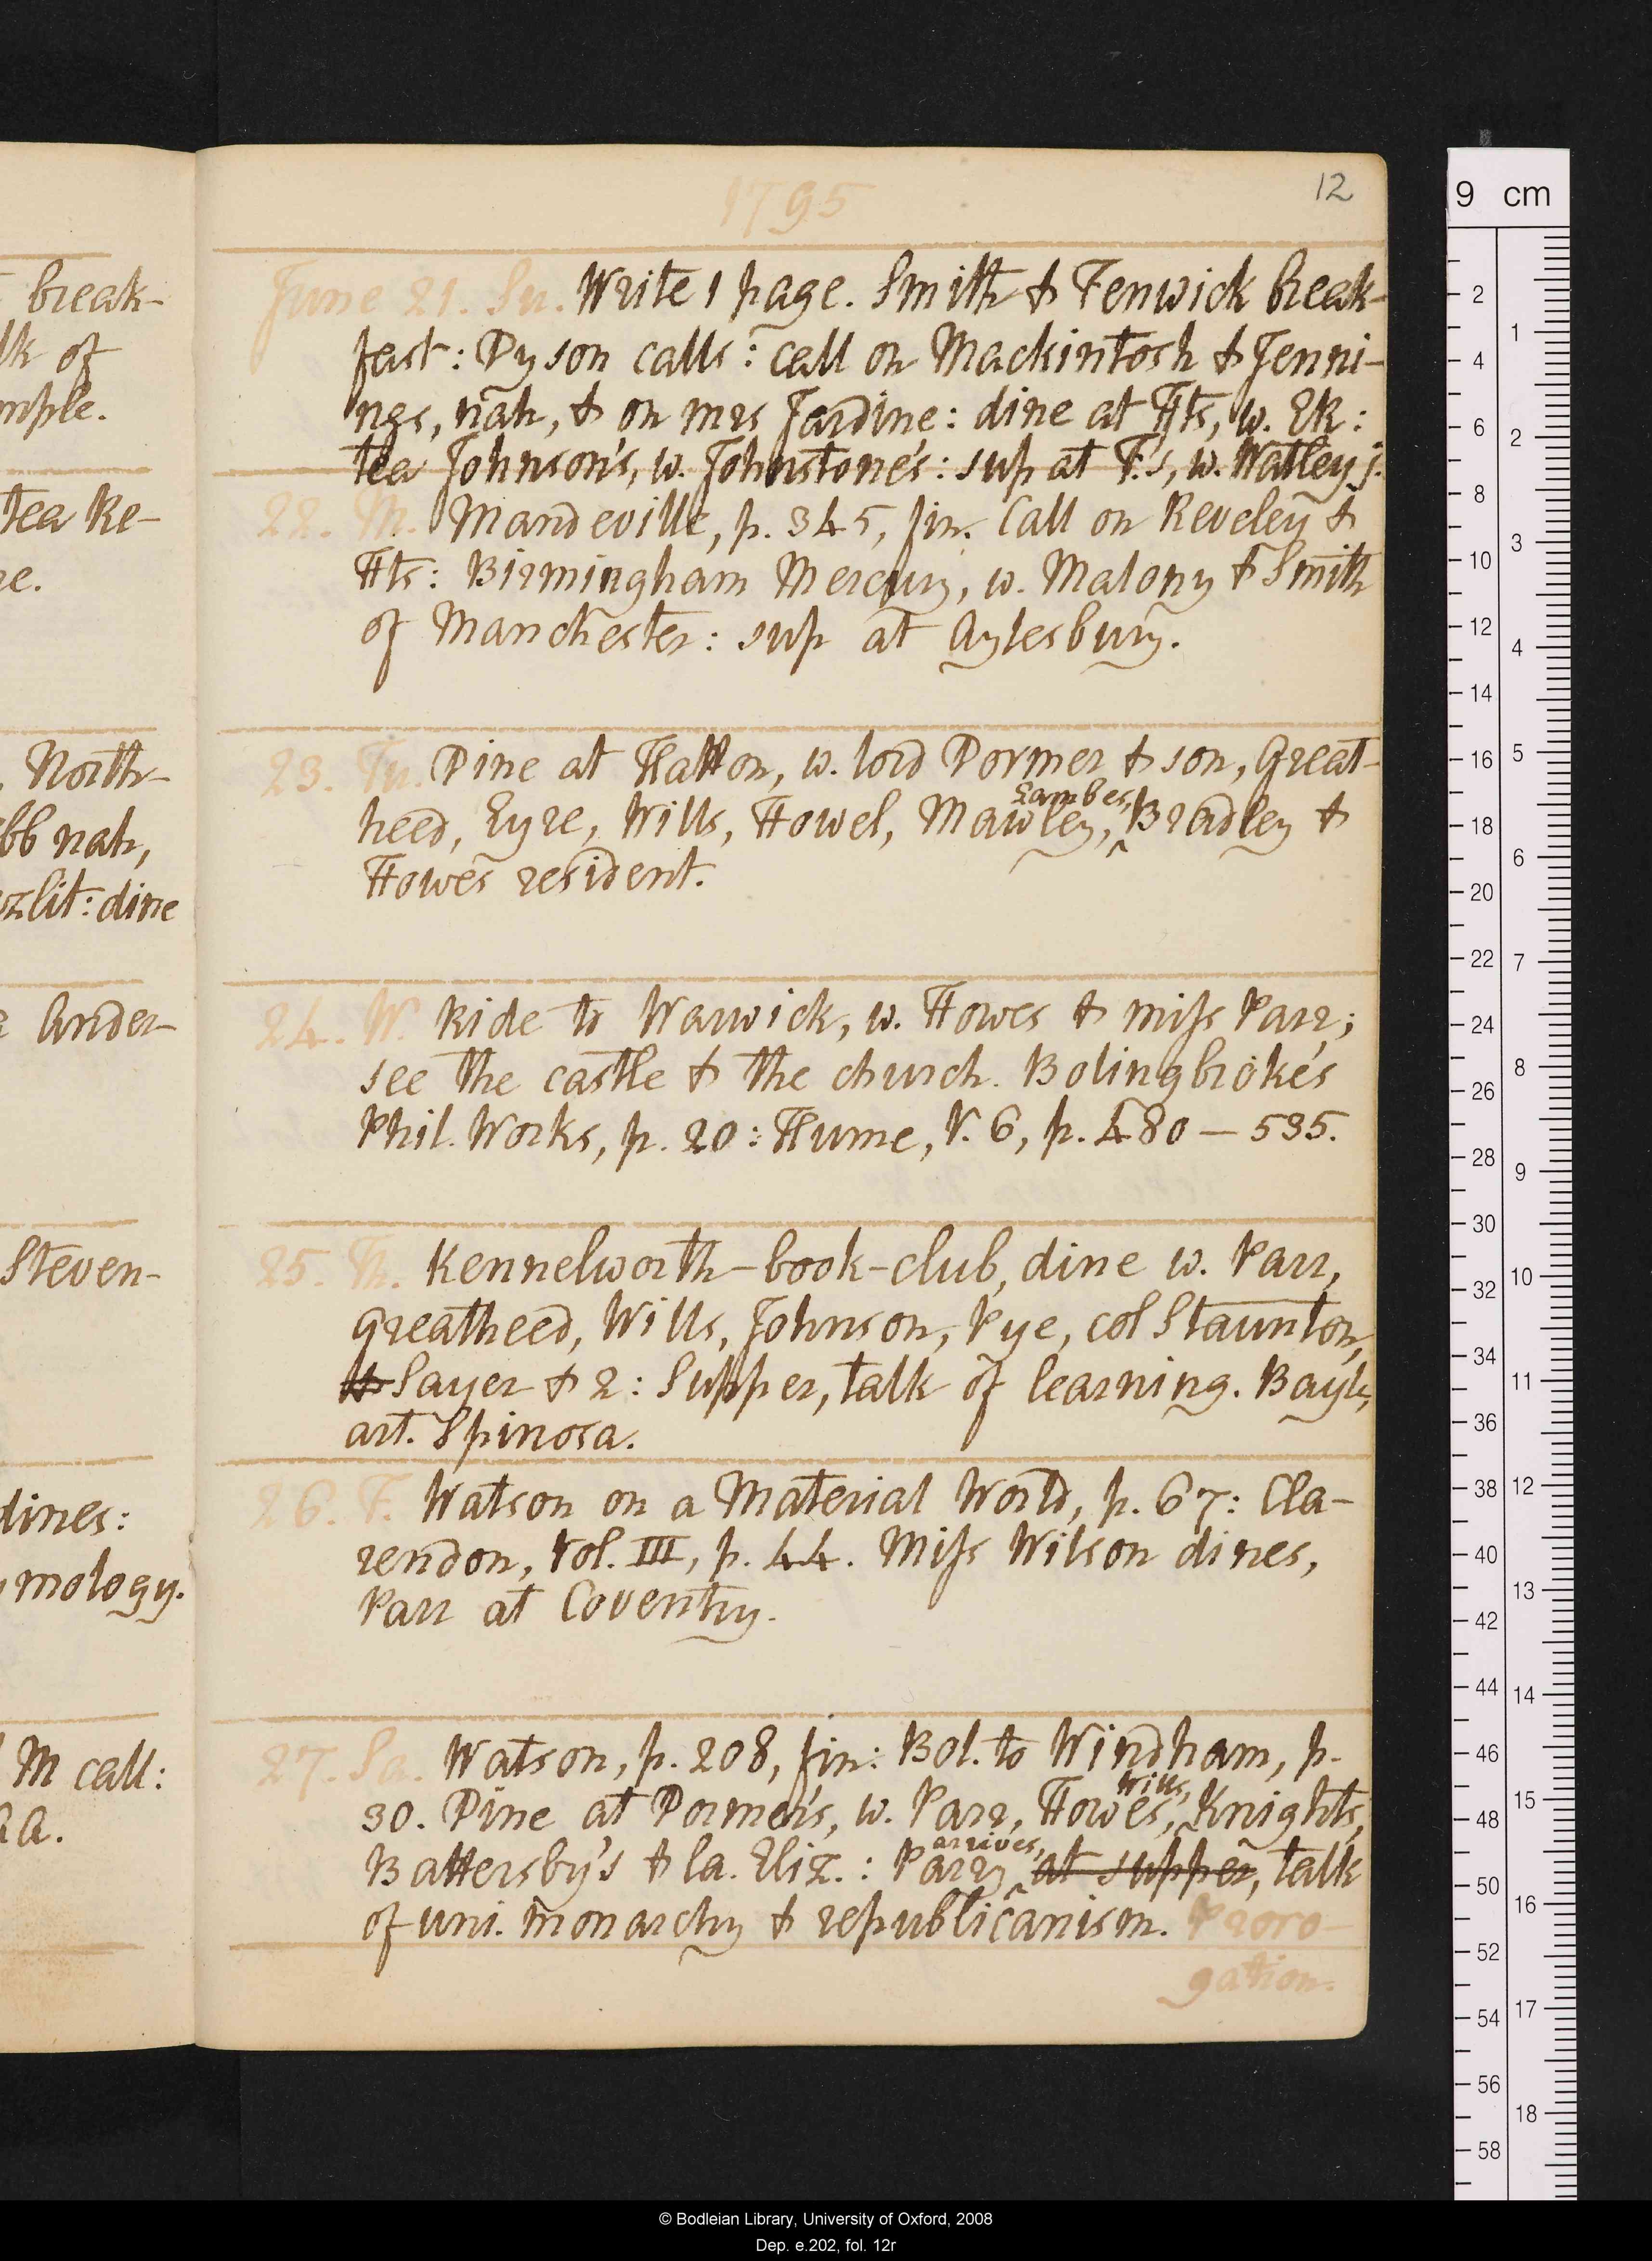 break-
lk of
mple.
tea Re-
re.
North-
bb nah,
zlit: dine
Ander-
Steven-
dines:
mology.
M call:
12
1795
June 21. Su. Write 1 page. Smith & Fenwick break-
fast: Dyson calls: call on Mackintosh & Jenni-
ngs, nah, & on mrs Jardine: dine at Hts, w. Ek:
tea Johnson's, w. Johnstone's: sup at F's, w. Watley j.
22. M. Mandeville, p. 345, fin. Call on Reveley &
Hts: Birmingham Mercury, w. Malony & Smith
of Manchester: sup at Aylesbury.
23. Tu. Dine at Hatton, w. lord Dormer & son, Great-
heed, Eyre, Wills, Howel, Mawley, ^Lambes, Bradley &
Howes resident.
24. W. Ride to Warwick, w. Howes & miss Parr;
see the castle & the church. Bolingbroke's
Phil. Works, p. 20: Hume, V. 6, p. 480 — 535.
25. Th. Kennelworth-book-club, dine w. Parr,
Greatheed, Wills, Johnson, Pye, col Staunton,
Sayer & 2: Supper, talk of learning. Bayle,
art. Spinosa.
26. F. Watson on a Material World, p. 67: Cla-
rendon, Vol. III, p. 44. Miss Wilson dines,
Parr at Coventry.
27. Sa. Watson, p. 208, fin: Bol. to Windham, p.
30. Dine at Dormer's, w. Parr, Howes, ^Wills, Knights,
Battersby's & la. Eliz.: Parry ^arrives, at supper, talk
of uni. monarchy & republicanism. Proro
gation.
9 cm
2
4
6
8
10
12
14
16
18
20
22
24
26
28
30
32
34
36
38
40
42
44
46
48
50
52
54
56
58
1
2
3
4
5
6
7
8
9
10
11
12
13
14
15
16
17
18
© Bodleian Library, University of Oxford, 2008
Dep. e.202, fol. 12r